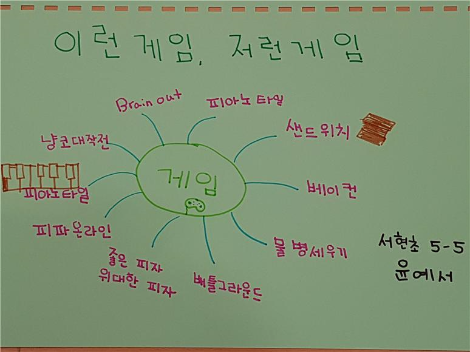 이런게임, 저런게임
Brain out
피아노타일
샌드위치
냥코대작전
게임
베이컨
피아노타일
피파온라인
물병세우기
좋은 피자
위대한 피자
배틀그라운드
서현초 5-5
윤예서